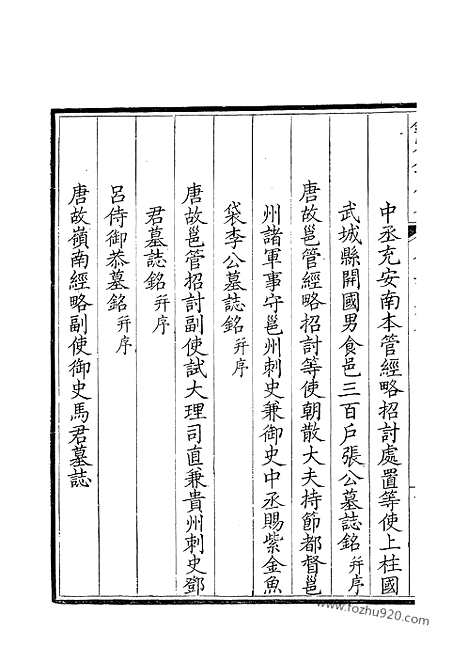 中丞充安南本管經略招討處置等使上柱國
武城縣開國男食邑三百戶張公墓誌銘并序
唐故邕管經略招討等使朝散大夫持節都督邕
州諸軍事守邕州刺史兼御史中丞賜紫金魚
袋李公墓誌銘并序
唐故邕管招討副使試大理司直兼貴州刺史鄧
君墓誌銘并序
呂侍御恭墓銘并序
唐故嶺南經略副使御史馬君墓誌
www.fozhu920.com